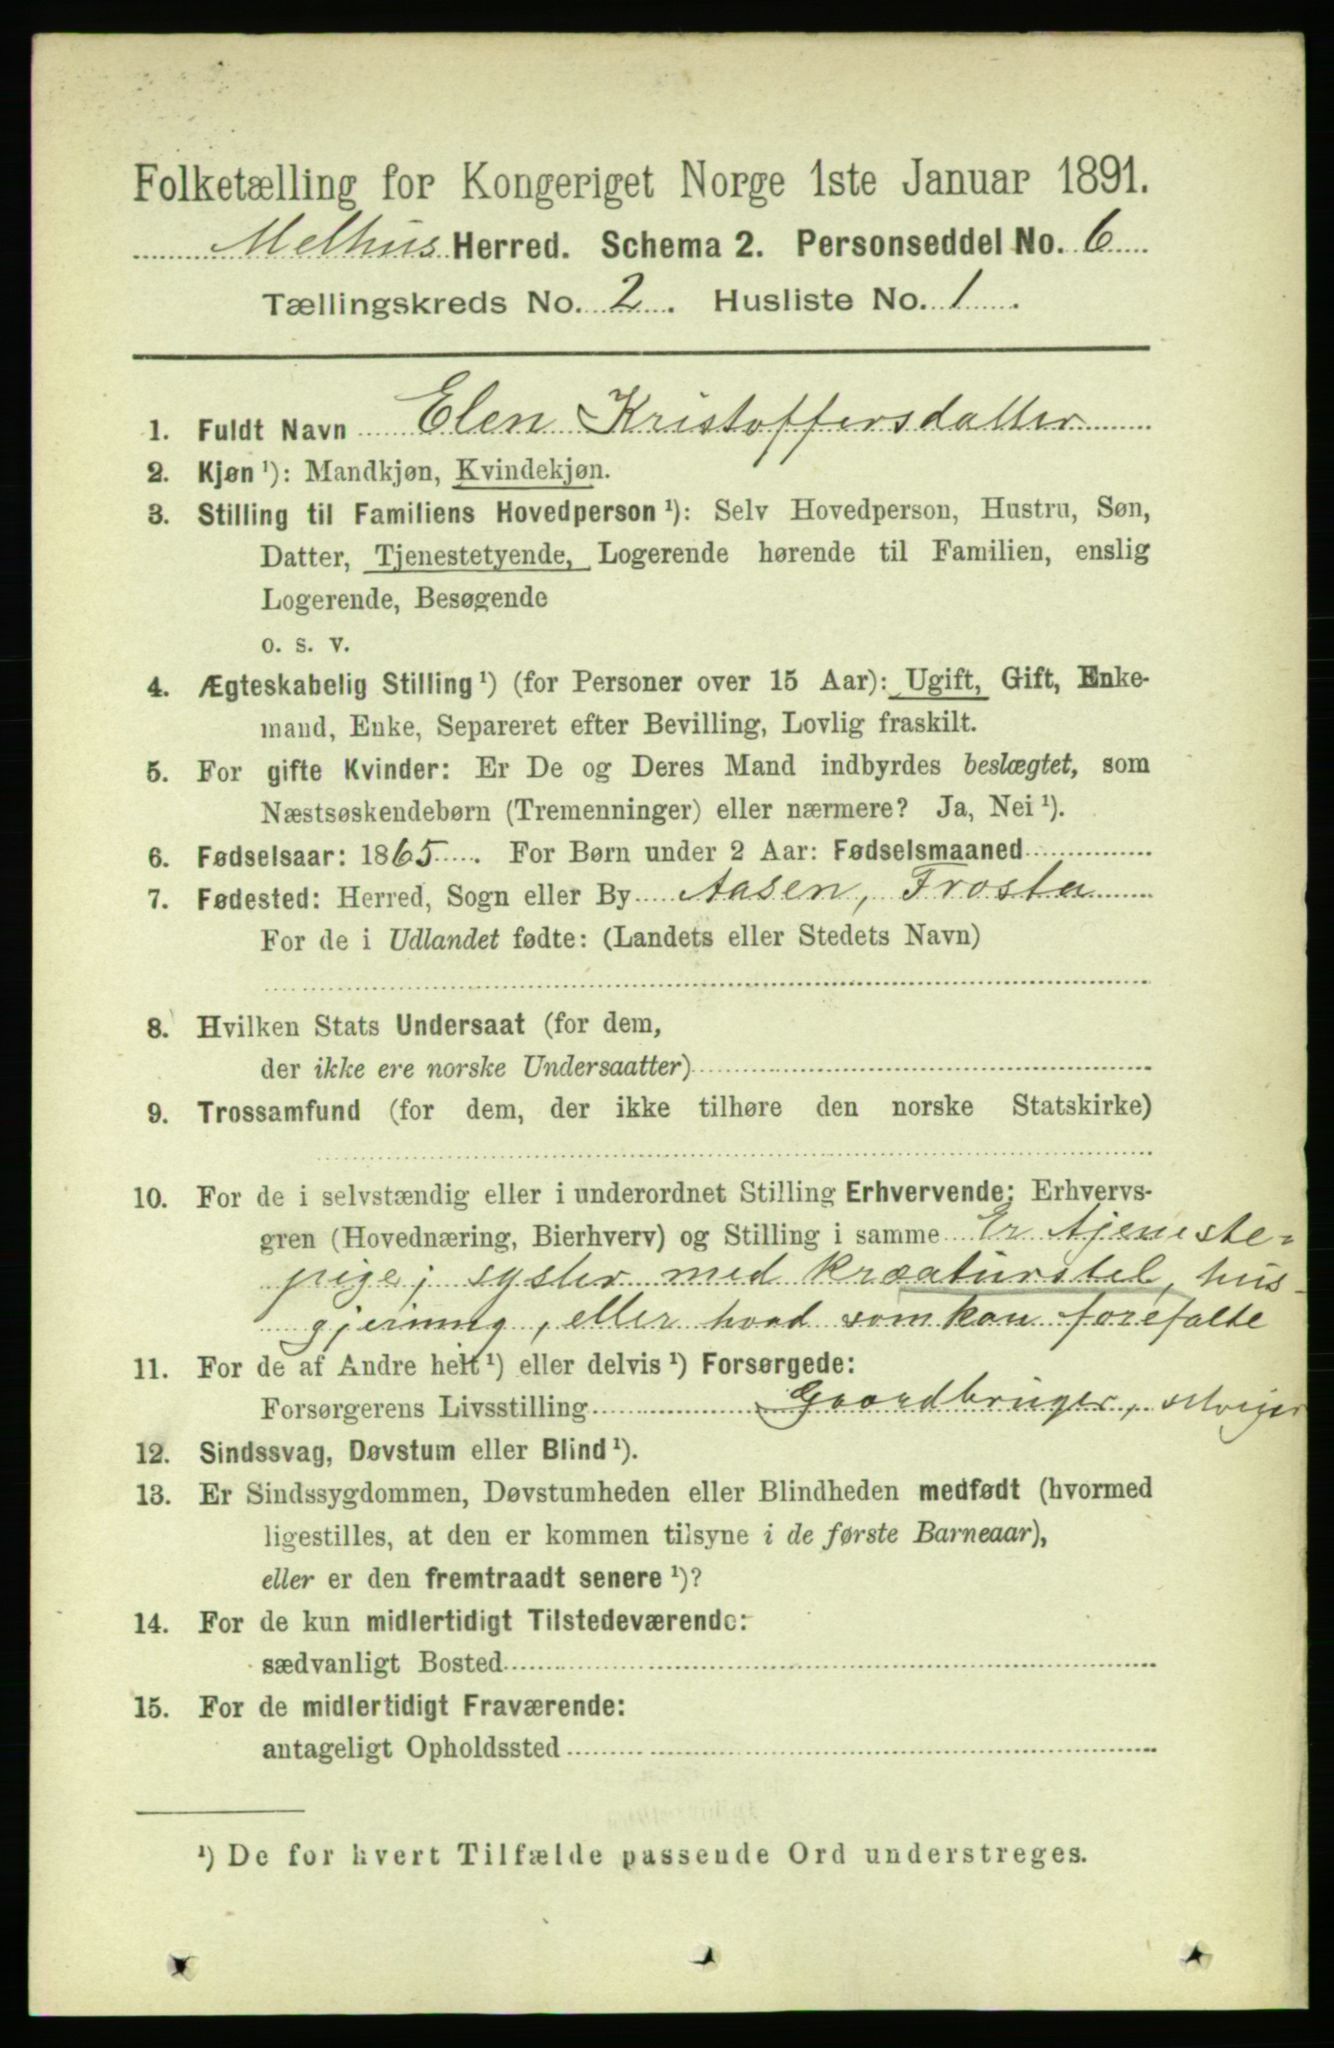 Folketælling for Kongeriget Norge 1ste Januar 1891.
Melhus Herred. Schema 2. Personseddel No. 6
Tællingskreds No. 2. Husliste No. 1.
1. Fuldt Navn Elen Kristoffersdatter
2. Kjøn ¹): Mandkjøn, Kvindekjøn.
3. Stilling til Familiens Hovedperson ¹): Selv Hovedperson, Hustru, Søn,
Datter, Tjenestetyende, Logerende hørende til Familien, enslig
Logerende, Besøgende
o. s. v.
4. Ægteskabelig Stilling ¹) (for Personer over 15 Aar): Ugift, Gift, Enke-
mand, Enke, Separeret efter Bevilling, Lovlig fraskilt.
5. For gifte Kvinder: Er De og Deres Mand indbyrdes beslægtet, som
Næstsøskendebørn (Tremenninger) eller nærmere? Ja, Nei ¹).
6. Fødselsaar: 1865. For Børn under 2 Aar: Fødselsmaaned
7. Fødested: Herred, Sogn eller By Aasen, Frosta
For de i Udlandet fødte: (Landets eller Stedets Navn)
8. Hvilken Stats Undersaat (for dem,
der ikke ere norske Undersaatter)
9. Trossamfund (for dem, der ikke tilhøre den norske Statskirke)
10. For de i selvstændig eller i underordnet Stilling Erhvervende: Erhvervs-
gren (Hovednæring, Bierhverv) og Stilling i samme Er tjeneste-
pige; sysler med kræaturstel, hus-
gjerning, eller hvad som kan forefalde
11. For de af Andre helt ¹) eller delvis ¹) Forsørgede:
Forsørgerens Livsstilling Gaardbruger, selveier
12. Sindssvag, Døvstum eller Blind ¹).
13. Er Sindssygdommen, Døvstumheden eller Blindheden medfødt (hvormed
ligestilles, at den er kommen tilsyne i de første Barneaar),
eller er den fremtraadt senere ¹)?
14. For de kun midlertidigt Tilstedeværende:
sædvanligt Bosted
15. For de midlertidigt Fraværende:
antageligt Opholdssted
¹) De for hvert Tilfælde passende Ord understreges.